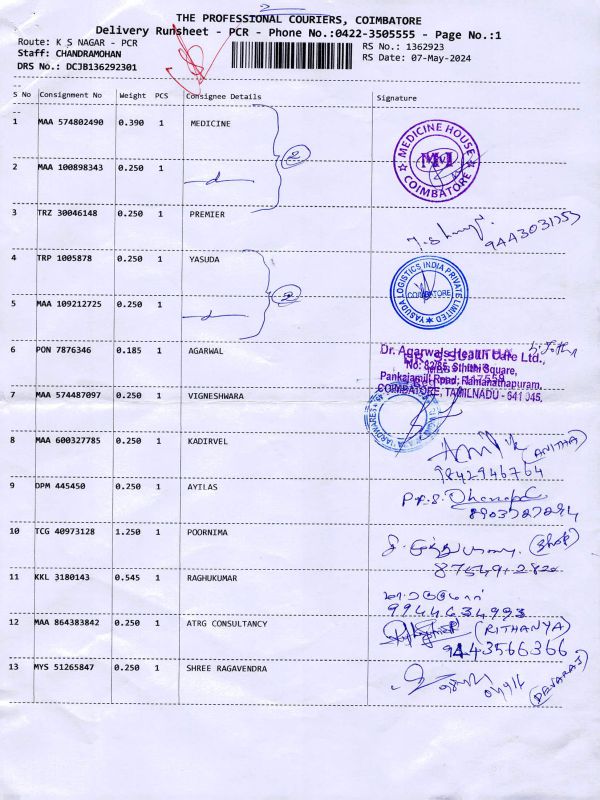 THE PROFESSIONAL COURIERS, COIMBATORE
Delivery Runsheet - PCR - Phone No.:0422-3505555 - Page No.:1
Route: K S NAGAR - PCR
RS No.: 1362923
Staff: CHANDRAMOHAN
RS Date: 07-May-2024
DRS No.: DCJB136292301
S No Consignment No Weight PCS Consignee Details Signature
1 MAA 574802490 0.390 1 MEDICINE
MEDICINE HOUSE COIMBATORE
2
2 MAA 100898343 0.250 1
3 TRZ 30046148 0.250 1 PREMIER
9443031253
4 TRP 1005878 0.250 1 YASUDA
YASUDA LOGISTICS INDIA PRIVATE LIMITED
COIMBATORE
2
5 MAA 109212725 0.250 1
6 PON 7876346 0.185 1 AGARWAL
Dr. Agarwals Health Care Ltd.,
No: 82/85, Sthithi Square,
Pankajamill Road, Ramanathapuram,
COIMBATORE, TAMILNADU - 641 045.
7 MAA 574487097 0.250 1 VIGNESHWARA
HARDWARES
8 MAA 600327785 0.250 1 KADIRVEL
(ANITHA)
9842946764
9 DPM 445450 0.250 1 AYILAS
10 TCG 40973128 1.250 1 POORNIMA
11 KKL 3180143 0.545 1 RAGHUKUMAR
9944634993
12 MAA 864383842 0.250 1 ATRG CONSULTANCY
(RITHANYA)
9443566366
13 MYS 51265847 0.250 1 SHREE RAGAVENDRA
(DEVARAJ)